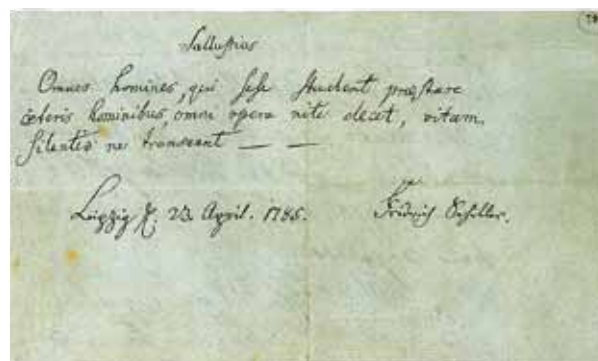 Sallustius
Omnes homines, qui sese student præstare
cæteris hominibus, omni opera niti decet, vitam
silentio ne transeant — —
Leipzig d. 23. April. 1785. Fridrich Schiller.